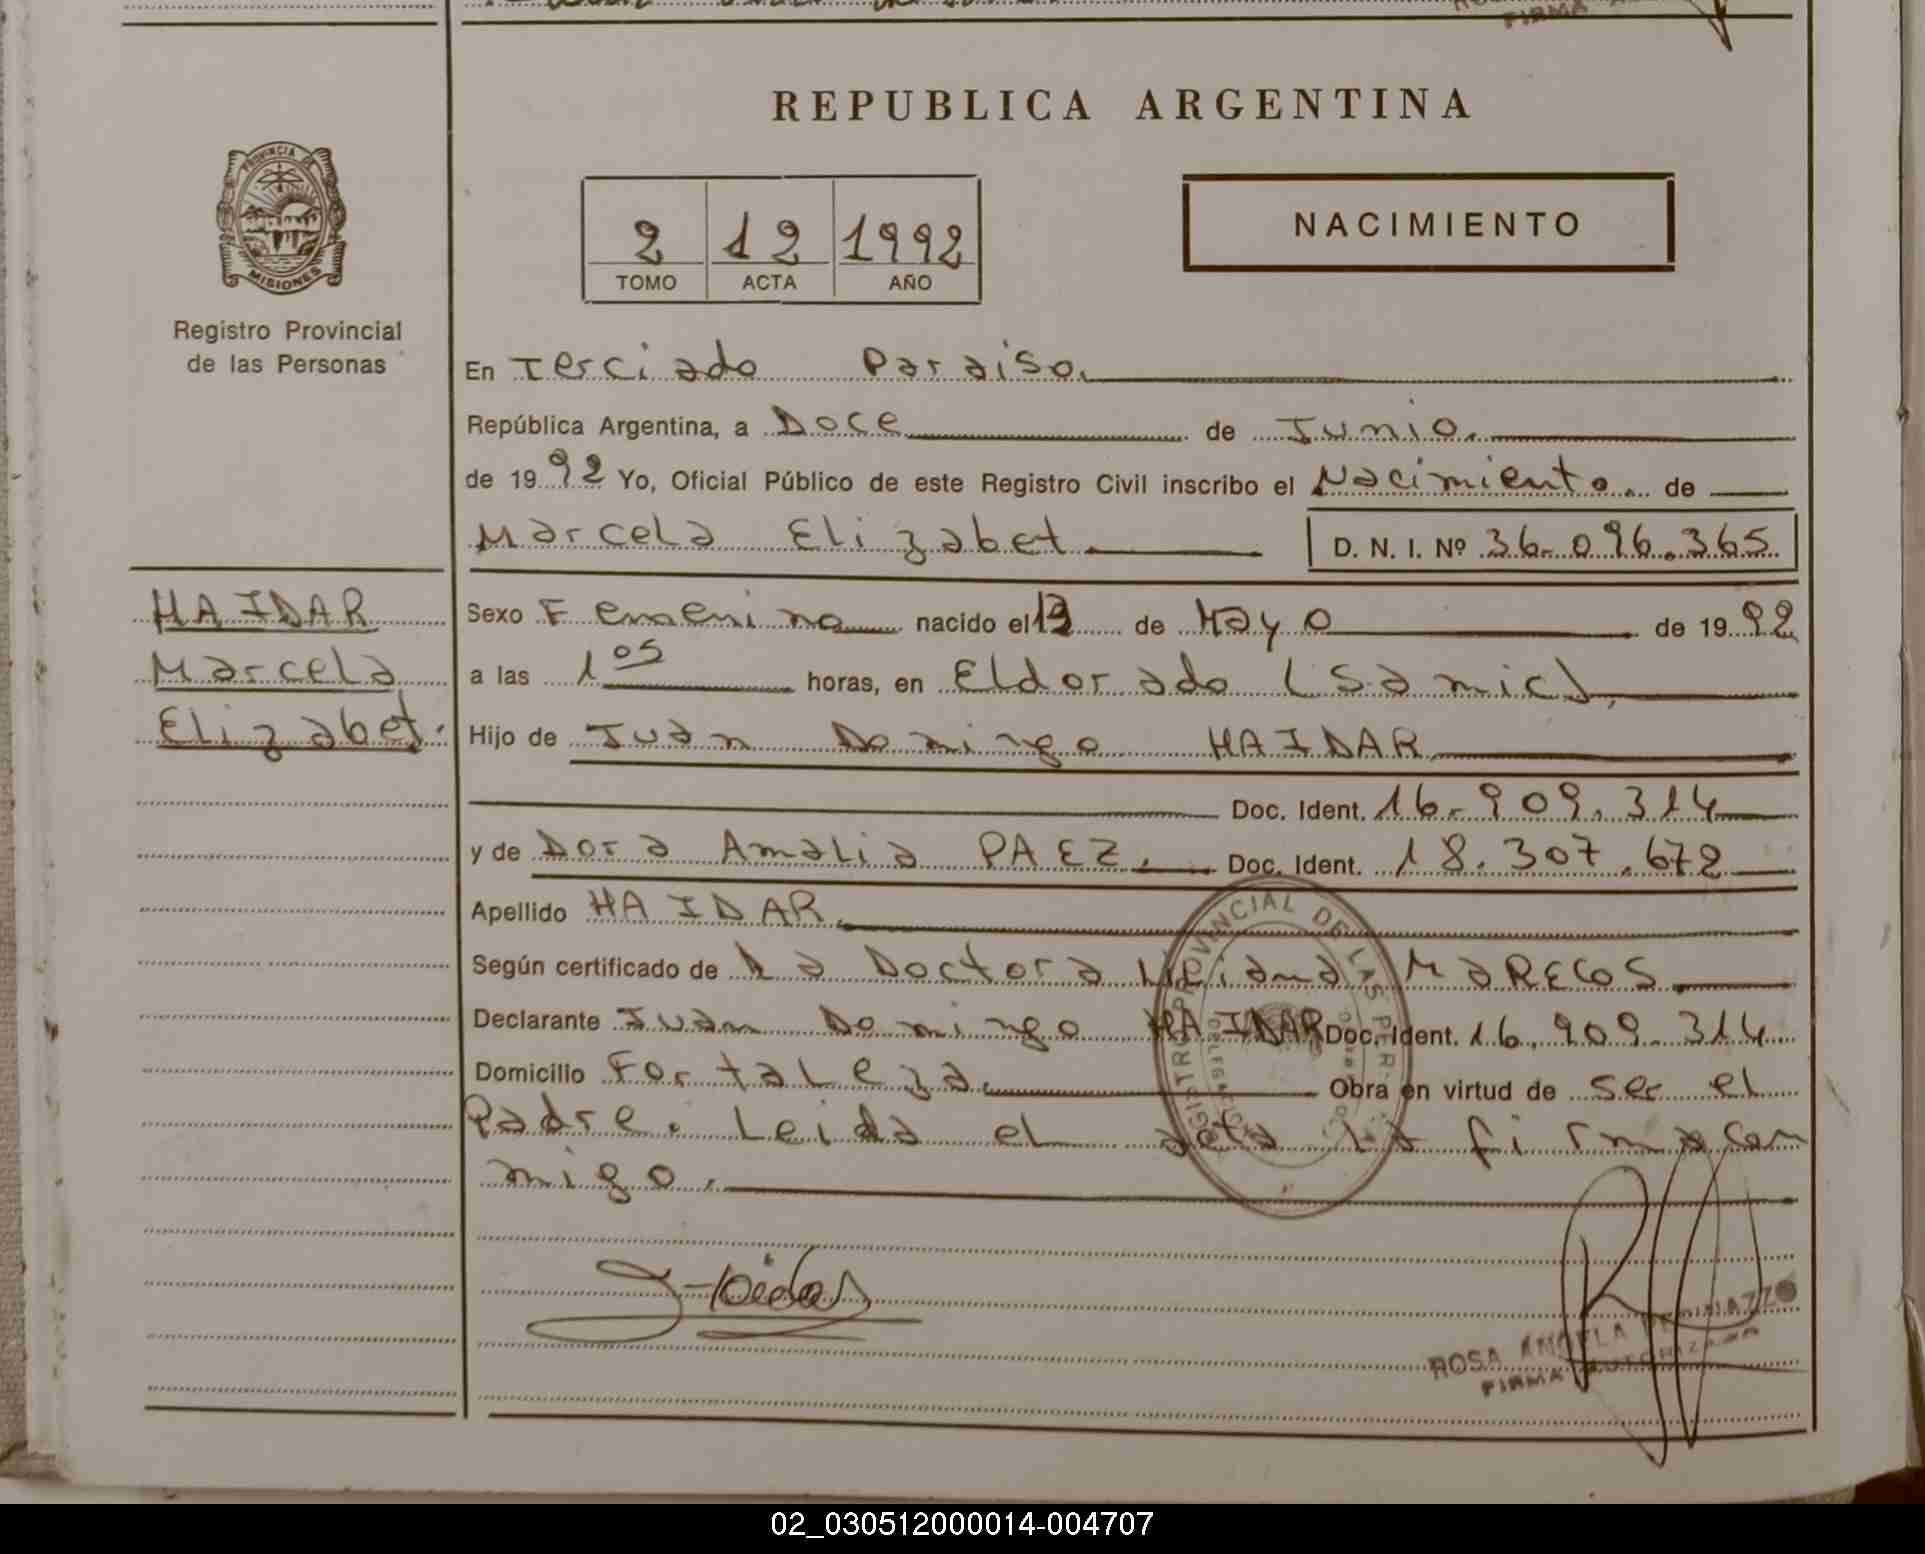 REPUBLICA ARGENTINA
PROVINCIA DE
MISIONES
Registro Provincial
de las Personas
2 12 1992
TOMO ACTA AÑO
NACIMIENTO
En Terciado Paraiso.
República Argentina, a Doce de Junio.
de 1992 Yo, Oficial Público de este Registro Civil inscribo el Nacimiento. de
Marcela Elizabet D. N. I. Nº 36.096.365
HAIDAR
Marcela
Elizabet.
Sexo Femenino nacido el de Mayo de 1992
a las 1 05 horas, en Eldorado (Samic).
Hijo de Juan Domingo HAIDAR
Doc. Ident. 16.909.314
y de Dora Amalia PAEZ. Doc. Ident. 18.307.672
Apellido HAIDAR.
Según certificado de La Doctora MARECOS
Declarante Juan Domingo HAIDAR Doc. Ident. 16.909.314
Domicilio Fortaleza. Obra en virtud de ser el
Padre. Leida el acta la firma con
migo.
REGISTRO PROVINCIAL DE LAS PER
ROSA ANGELA
FIRMA AUTORIZADA
02_030512000014-004707